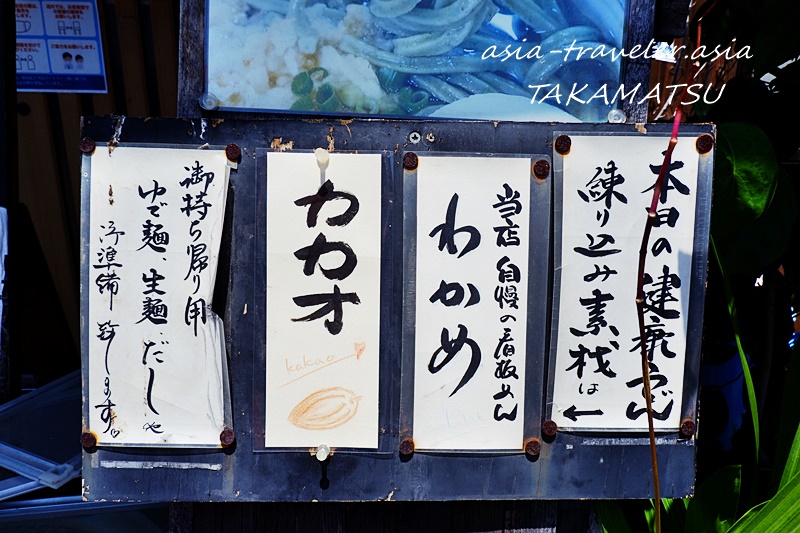 asia-traveler.asia
TAKAMATSU
本日の健康うどん
練り込み素材は
←
当店自慢の看板めん
わかめ
カカオ
kakao
御持ち帰り用
ゆで麺、生麺だしや
御準備致します。